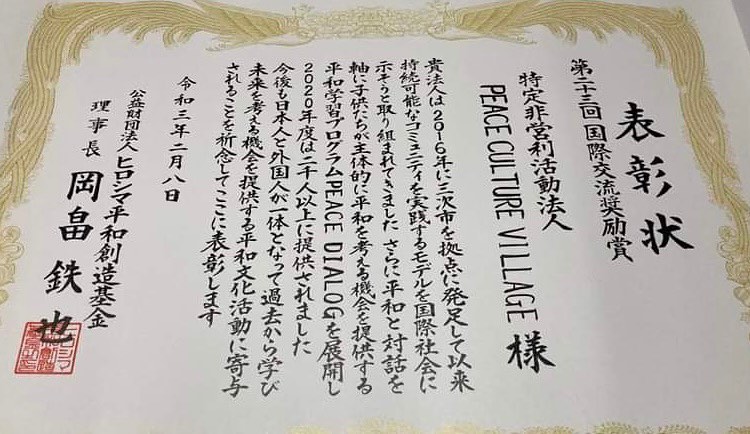 表彰状
第二十三回国際交流奨励賞
特定非営利活動法人
PEACE CULTURE VILLAGE 様
貴法人は2016年に三次市を拠点に発足して以来
持続可能なコミュニティを実践するモデルを国際社会に
示そうと取り組まれてきました さらに平和と対話を
軸に子供たちが主体的に平和を考える機会を提供する
平和学習プログラムPEACE DIALOGを展開し
2020年度は二千人以上に提供されました
今後も日本人と外国人が一体となって過去から学び
未来を考える機会を提供する平和文化活動に寄与
されることを祈念してここに表彰します
令和三年二月八日
公益財団法人ヒロシマ平和創造基金
理事長 岡畠鉄也